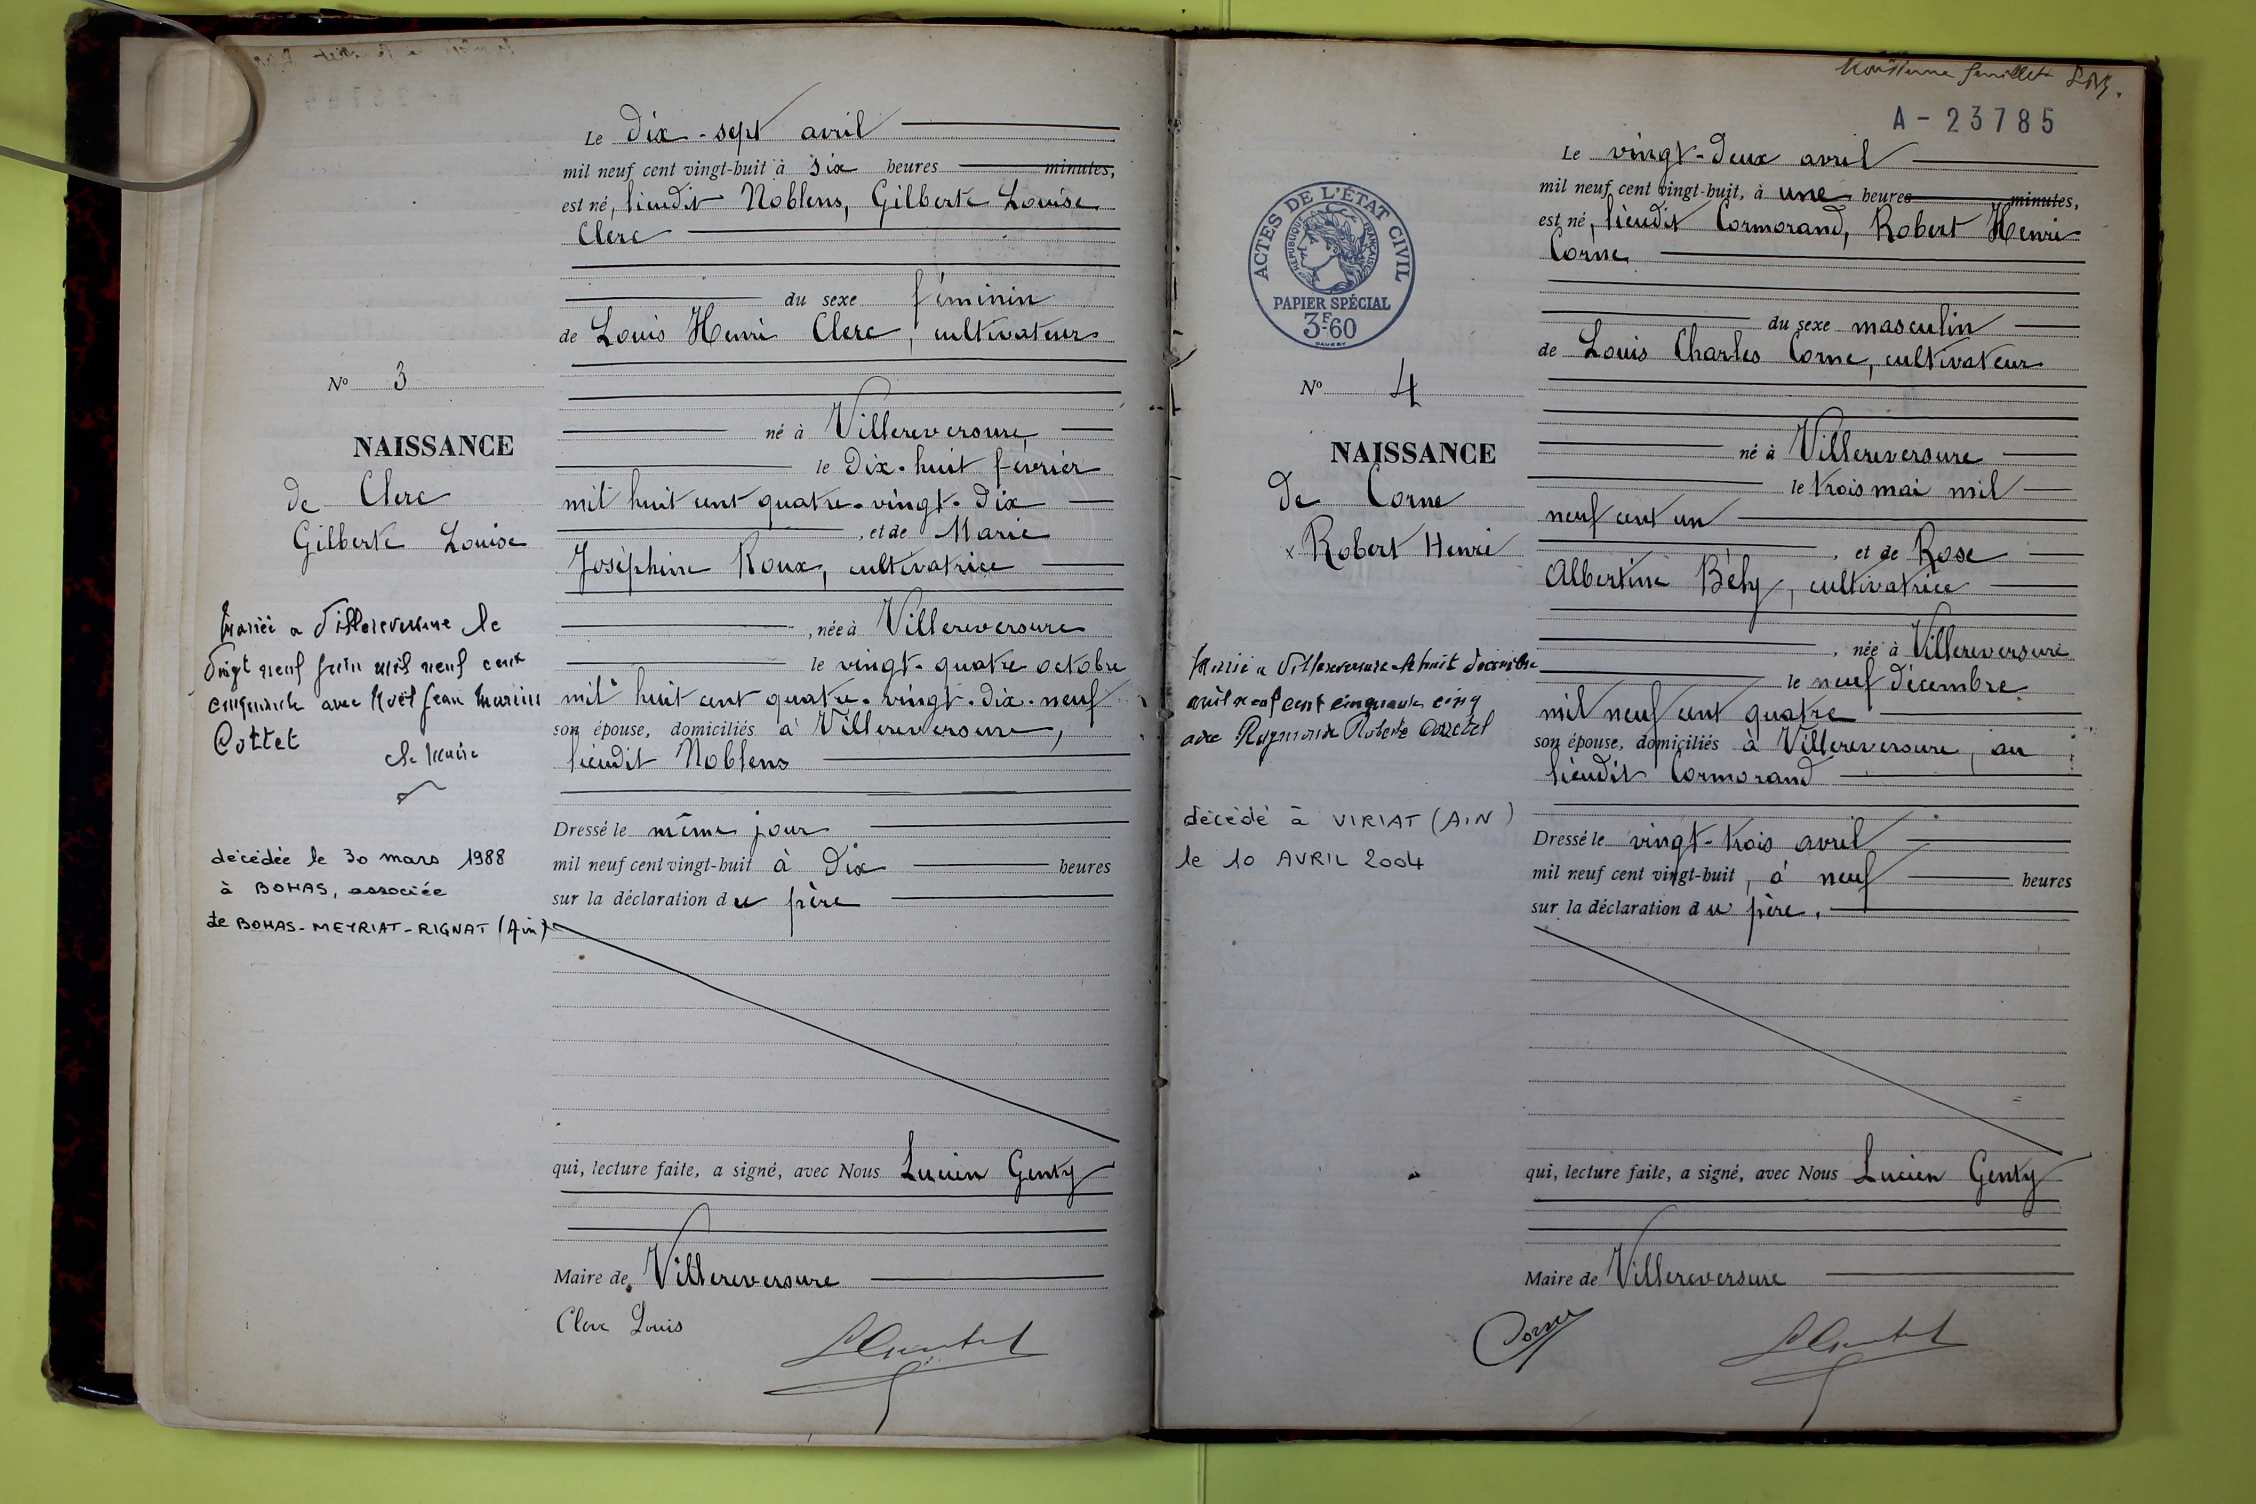 Le dix-sept avril
mil neuf cent vingt-huit à six heures minutes,
est né, lieudit Noblens, Gilberte Louise
Clerc
du sexe féminin
de Louis Henri Clerc, cultivateur
né à Villereversure,
le dix-huit février
mil huit cent quatre-vingt-dix
, et de Marie
Joséphine Roux, cultivatrice
, née à Villereversure
le vingt-quatre octobre
mil huit cent quatre-vingt-dix-neuf
son épouse, domiciliés à Villereversure,
lieudit Noblens
Dressé le même jour
mil neuf cent vingt-huit à dix heures
sur la déclaration du père
qui, lecture faite, a signé, avec Nous Lucien Genty
Maire de Villereversure
Clerc Louis
No 3
NAISSANCE
de Clerc
Gilberte Louise
Mariée a Villereversure le
vingt neuf juin mil neuf cent
cinquante avec Noël Jean Marius
Cottet
le Maire
décédée le 30 mars 1988
à BOHAS, associée
de BOHAS-MEYRIAT-RIGNAT (Ain)
feuillet
A-23785
ACTES DE L'ÉTAT CIVIL
RÉPUBLIQUE FRANÇAISE
PAPIER SPÉCIAL
3F60
No 4
NAISSANCE
de Corne
x Robert Henri
Marié a Villereversure le huit décembre
mil neuf cent cinquante cinq
avec Raymonde Roberte
décédé à VIRIAT (AIN)
le 10 AVRIL 2004
Le vingt-deux avril
mil neuf cent vingt-huit, à une heures minutes,
est né, lieudit Cormorand, Robert Henri
Corne
du sexe masculin
de Louis Charles Corne, cultivateur
né à Villereversure
le trois mai mil
neuf cent un
, et de Rose
Albertine Bély, cultivatrice
, née à Villereversure
le neuf décembre
mil neuf cent quatre
son épouse, domiciliés à Villereversure, au
lieudit Cormorand
Dressé le vingt-trois avril
mil neuf cent vingt-huit, à neuf heures
sur la déclaration du père.
qui, lecture faite, a signé, avec Nous Lucien Genty
Maire de Villereversure
Corne